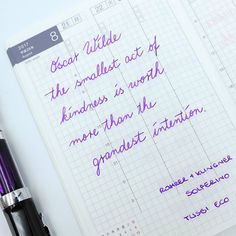 2017
8
August
21
22
Oscar Wilde
the smallest act of
kindness is worth
more than the
grandest intention.
ROHRER & KLINGNER
SOLFERINO
TWSBI ECO